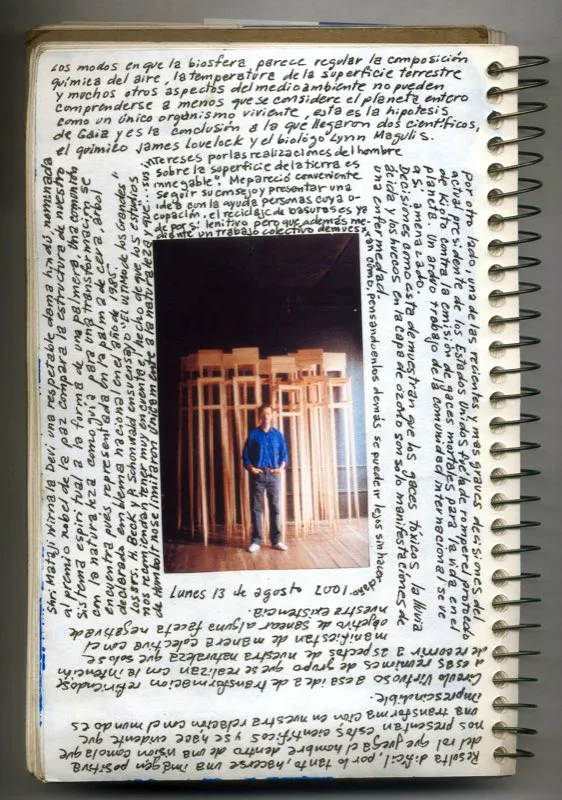 Los modos en que la biosfera, parece regular la composición
química del aire, la temperatura de la superficie terrestre
y muchos otros aspectos del medioambiente no pueden
comprenderse a menos que se considere el planeta entero
como un único organismo viviente, esta es la hipotesis
de Gaia y es la conclusión a la que llegaron dos científicos,
el químico James Lovelock y el biológo Lynn Magulis.
Por otro lado, una de las recientes y más graves decisiones del
actual presidente de los Estados Unidos fué la de romper el protocolo
de Kioto contra la emisión de gaces mortales para la vida en el
planeta. Un arduo trabajo de la comunidad internacional se ve
así amenazado.
Decisiones como esta demuestran que los gaces tóxicos, la lluvia
ácida y los huecos en la capa de ozono son solo manifestaciones de
una enfermedad.
Resulta difícil, por lo tanto, hacerse una imágen positiva
del rol que juega el hombre dentro de una visión como la que
nos presentan estos científicos y se hace evidente que
una transformación en nuestra relación con el mundo es
imprescindible.
Circulo Virtuoso a esa idea de transformación refiriendose
a esas reuniones de grupo que se realizan con la intención
de recorrir a aspectos de nuestra naturaleza que solo se
manifiestan de manera colectiva con el
objetivo de sanear alguna faceta negativa de
nuestra existencia.
Shri Mataji Nirmala Devi una respetable dama hindú, nominada
al premio nobel de la paz compara la estructura de nuestro
Sistema espiritual a la forma de una palmera. Una comunidad
con la naturaleza como guía para una transformación se
encuentra pués representada en la palma de cera, árbol
declarado emblema nacional en el año de 1985.
Los srs. H. Beck y P. Schonwald en su ensayo "El ultimo de los Grandes"
nos recomiendan tener muy en cuenta el hecho de que los estudios
de Humbolt no se limitaron únicamente a la naturaleza y que... sus in
tereses por las realizaciones del hombre
sobre la superficie de la tierra es
innegable". Me pareció conveniente
seguir su consejo y presentar una
idea con la ayuda personas cuya o-
cupación, el reciclaje de basuras es ya
de por si lenitivo pero que además me-
diante un trabajo colectivo demues-
tran cómo, pensando en los demás se puede ir lejos sin hacer
daño.
Lunes 13 de agosto 2001.